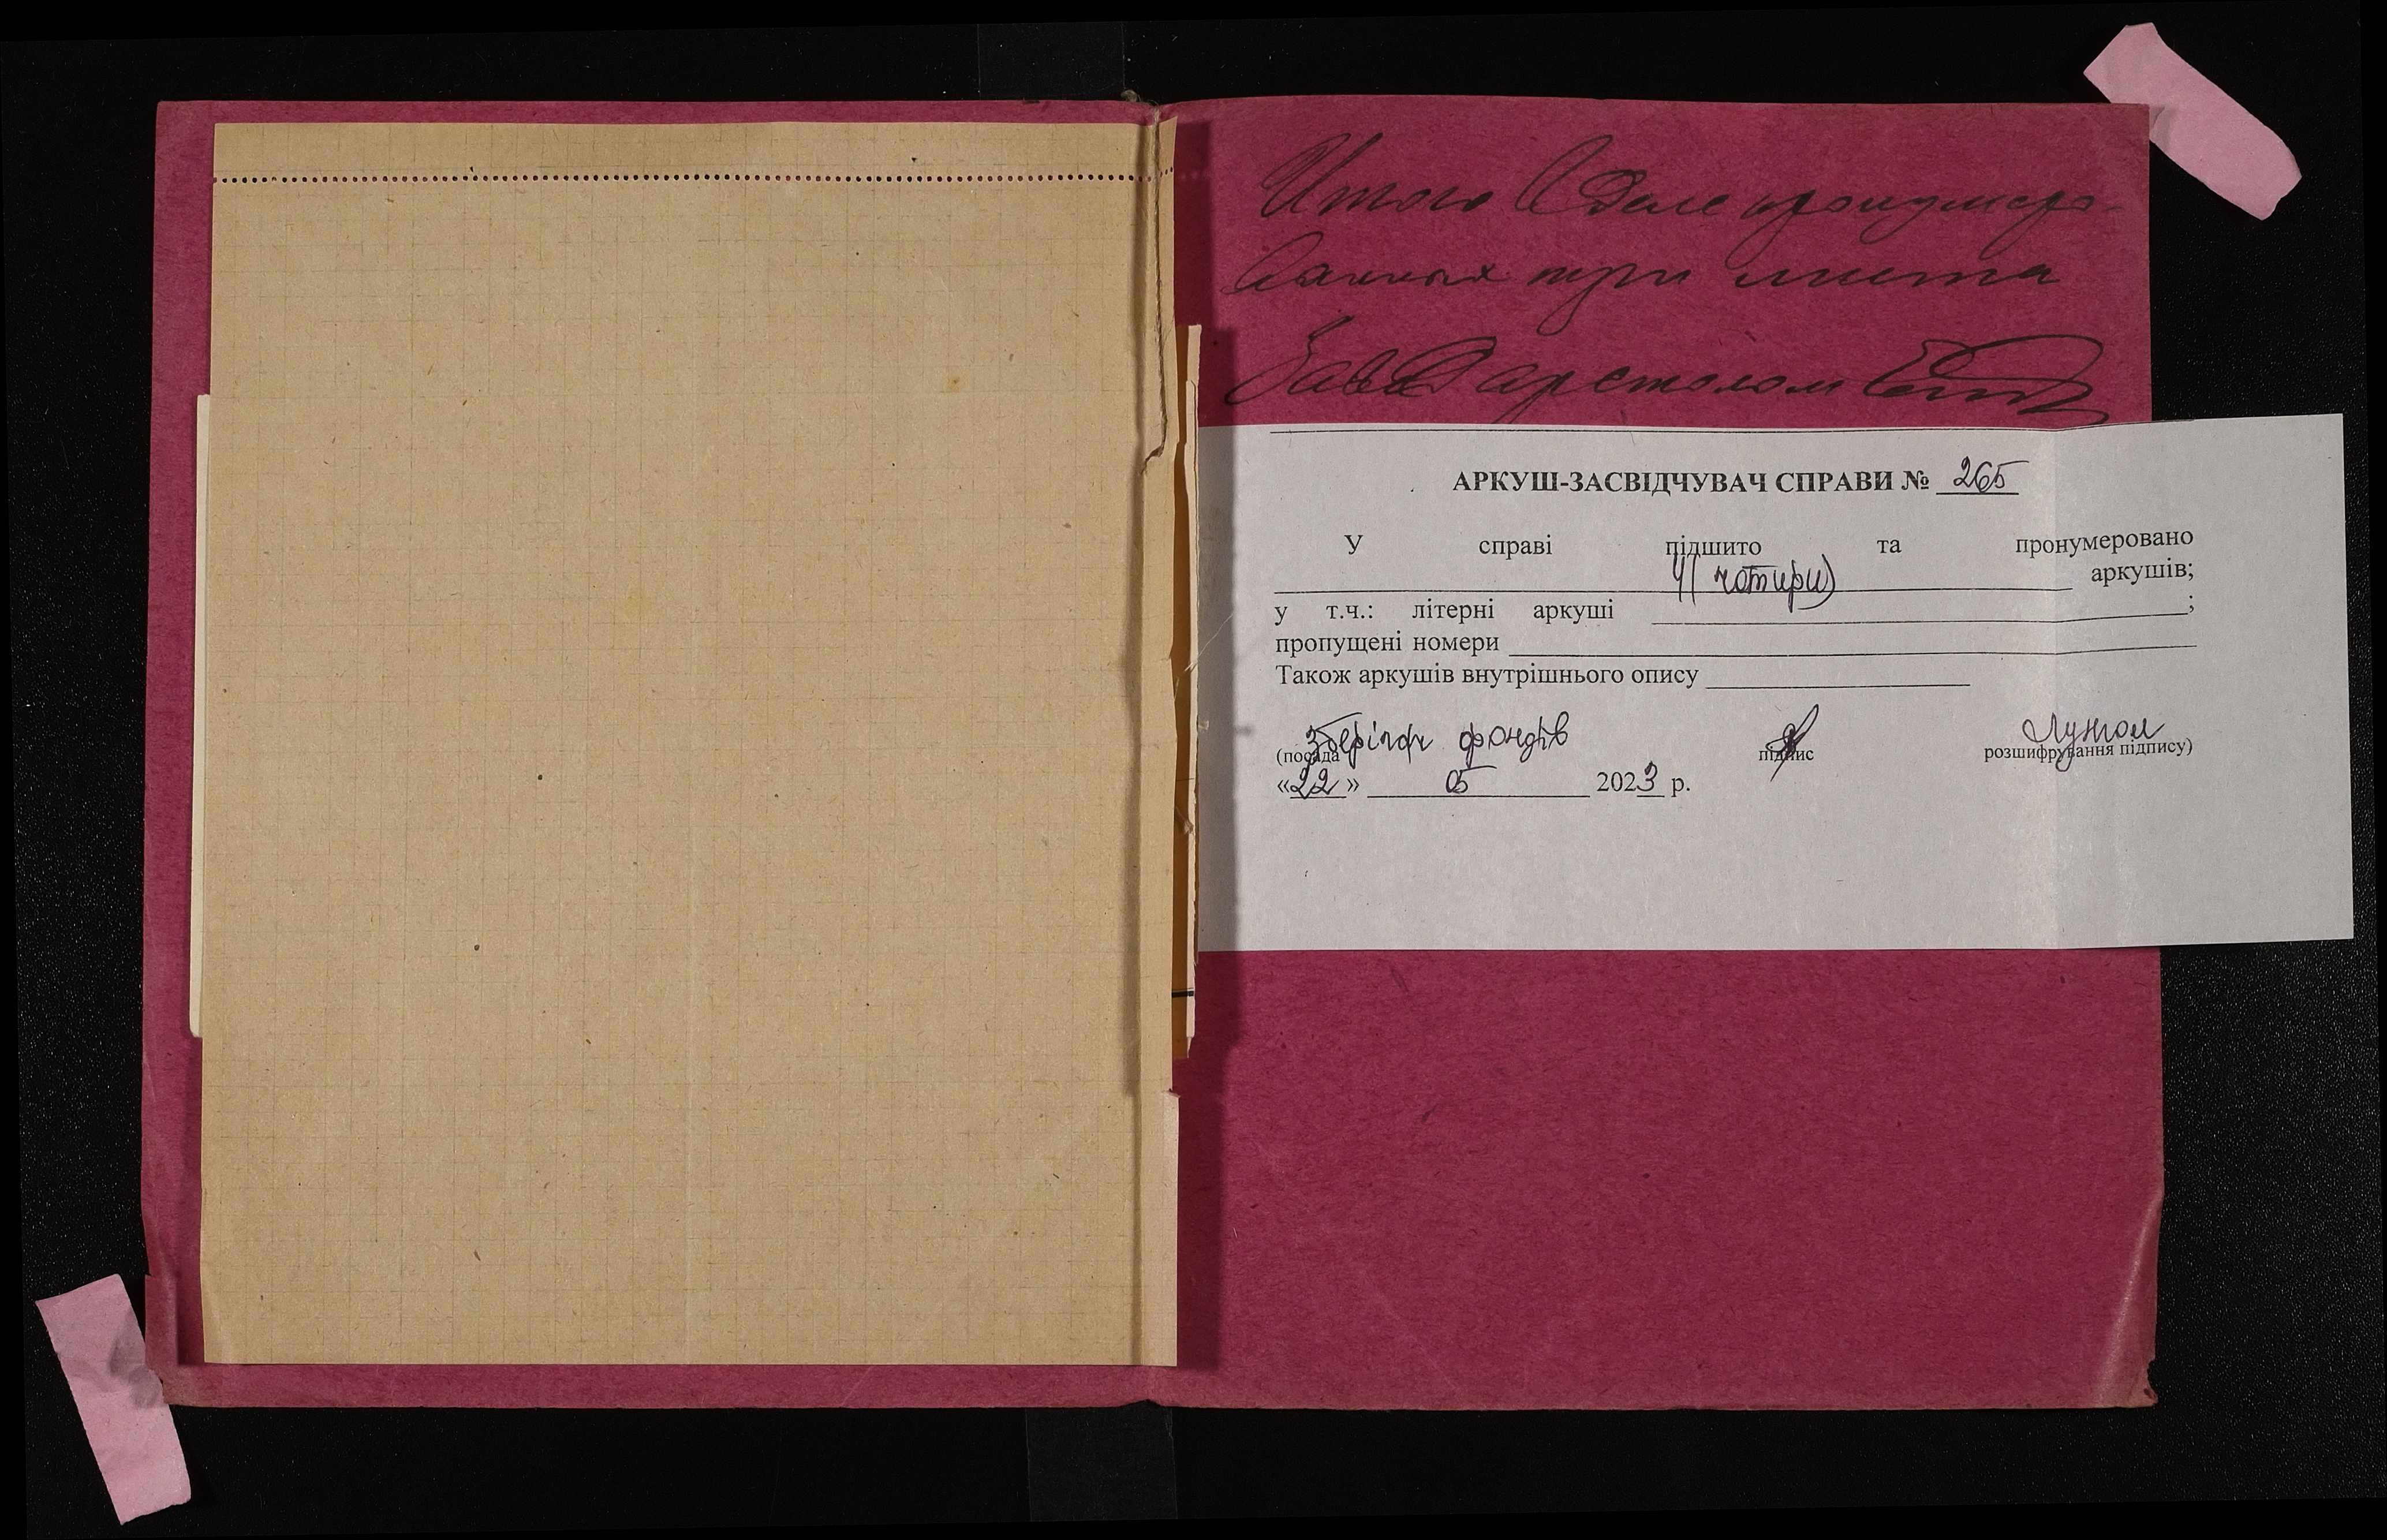 Итого в деле пронумеро-
ванных три листа
Зав арстолом
АРКУШ-ЗАСВІДЧУВАЧ СПРАВИ № 265
У справі підшито та пронумеровано
4 (чотири) аркушів;
у т.ч.: літерні аркуші ;
пропущені номери
Також аркушів внутрішнього опису
зберігач фондів
(посада підпис розшифрування підпису)
«22» 05 2023 р.